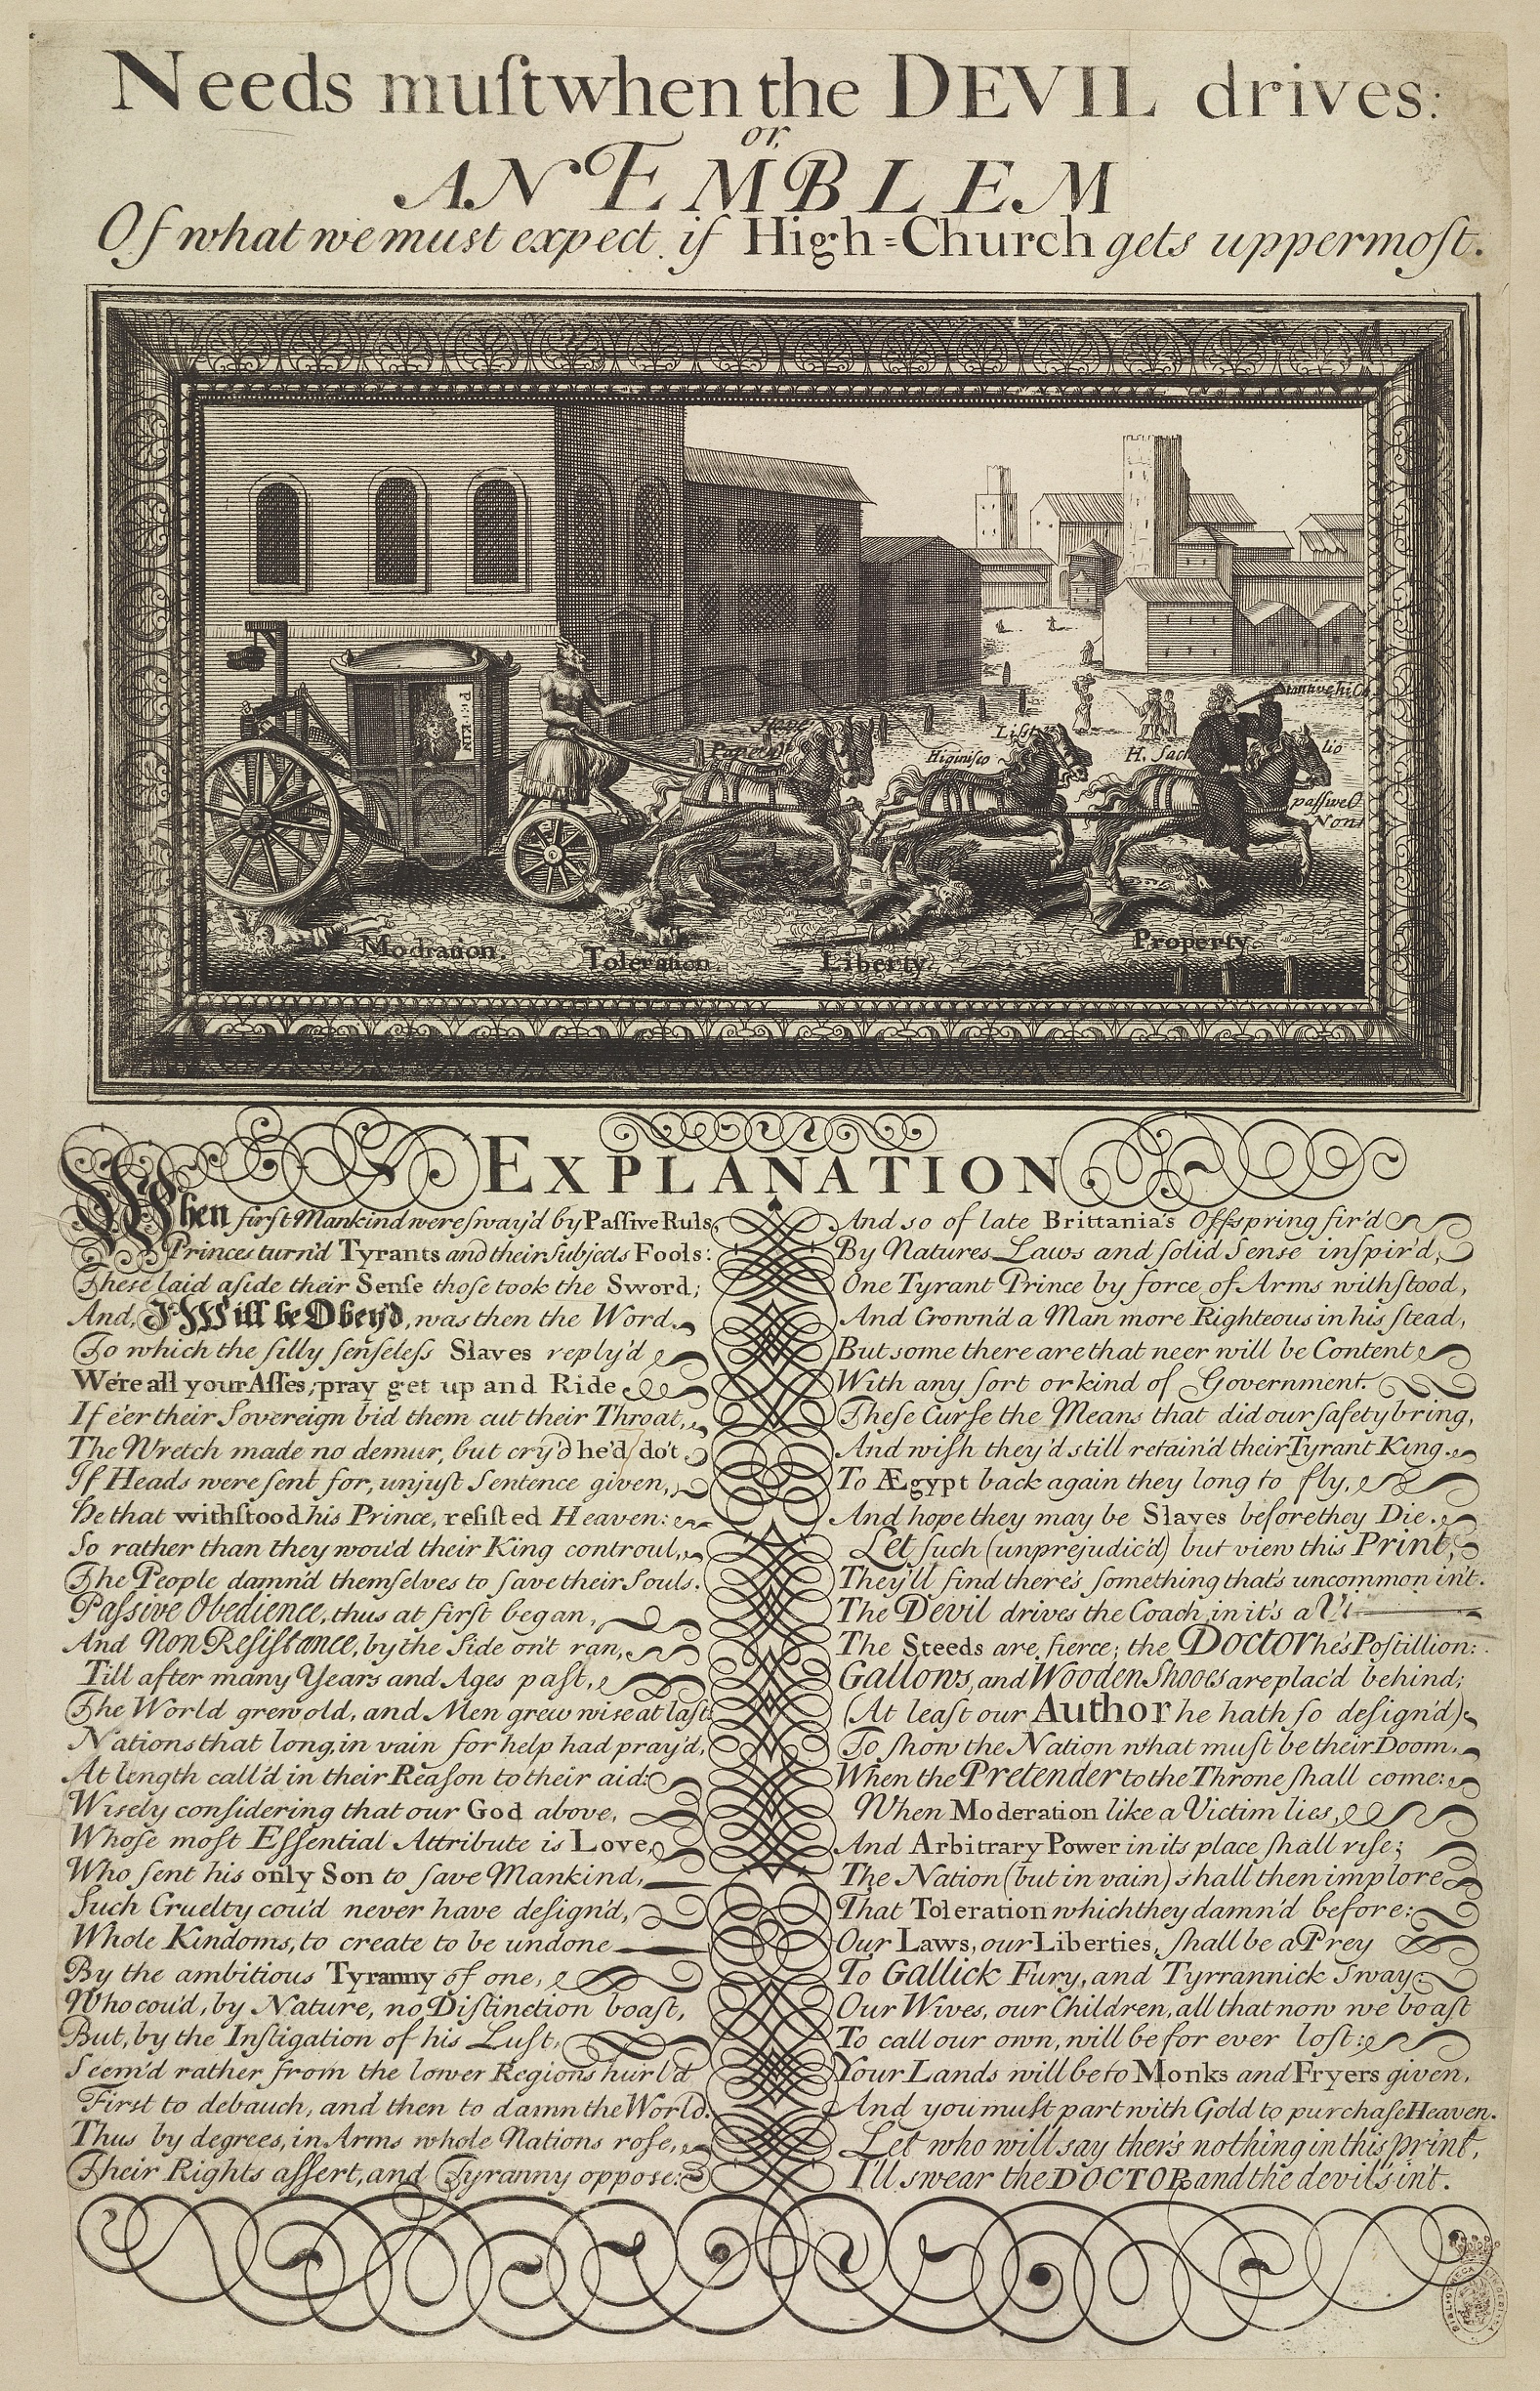 Needs muſt when the DEVIL drives:
or,
AN EMBLEM
Of what we must expect if High=Church gets uppermoſt.
Perkin
Hope
Lisſt
Higiniſco
H. Sach
lio
paſſiveO
Non
Modration.
Toleration.
Liberty.
Property.
EXPLANATION
When firſt Mankind were ſway'd by Paſſive Ruls,
Princes turn'd Tyrants and their Subjects Fools:
Theſe laid aſide their Senſe thoſe took the Sword;
And, I Will be Obey'd, was then the Word.
To which the ſilly ſenſeleſs Slaves reply'd
We're all your Aſſes, pray get up and Ride
If e'er their Sovereign bid them cut their Throat,
The Wretch made no demur, but cry'd he'd do't.
If Heads were ſent for, unjuſt Sentence given,
He that withſtood his Prince, reſiſted Heaven:
So rather than they wou'd their King controul,
The People damn'd themſelves to ſave their Souls.
Paſſive Obedience, thus at firſt began,
And Non Reſiſtance, by the Side on't ran,
Till after many Years and Ages paſt,
The World grew old, and Men grew wiſe at laſt.
Nations that long, in vain for help had pray'd,
At length call'd in their Reaſon to their aid:
Wisely conſidering that our God above,
Whoſe moſt Eſſential Attribute is Love,
Who ſent his only Son to ſave Mankind,
Such Cruelty cou'd never have deſign'd,
Whole Kindoms, to create to be undone
By the ambitious Tyranny of one,
Who cou'd, by Nature, no Diſtinction boaſt,
But, by the Inſtigation of his Luſt,
Seem'd rather from the lower Regions hurl'd
First to debauch, and then to damn the World.
Thus by degrees, in Arms whole Nations roſe,
Their Rights aſſert, and Tyranny oppose:
And so of late Brittania's Offspring fir'd
By Natures Laws and ſolid Sense inſpir'd,
One Tyrant Prince by force of Arms withſtood,
And Crown'd a Man more Righteous in his ſtead,
But some there are that neer will be Content
With any ſort or kind of Government.
Theſe Curſe the Means that did our ſafety bring,
And wiſh they'd still retain'd their Tyrant King.
To Ægypt back again they long to fly,
And hope they may be Slaves before they Die.
Let ſuch (unprejudic'd) but view this Print,
They'll find there's ſomething that's uncommon in't.
The Devil drives the Coach, in it's a Vi
The Steeds are fierce; the Doctor he's Poſtillion:
Gallows, and Wooden Shooes are plac'd behind;
(At leaſt our Author he hath ſo deſign'd)
To ſhow the Nation what muſt be their Doom,
When the Pretender to the Throne ſhall come:
When Moderation like a Victim lies,
And Arbitrary Power in its place ſhall riſe;
The Nation (but in vain) shall then implore
That Toleration which they damn'd before:
Our Laws, our Liberties, ſhall be a Prey
To Gallick Fury, and Tyrrannick Sway
Our Wives, our Children, all that now we boaſt
To call our own, will be for ever loſt:
Your Lands will be to Monks and Fryers given,
And you muſt part with Gold to purchaſe Heaven.
Let who will say ther's nothing in this print,
I'll swear the DOCTOR and the devil's in't.